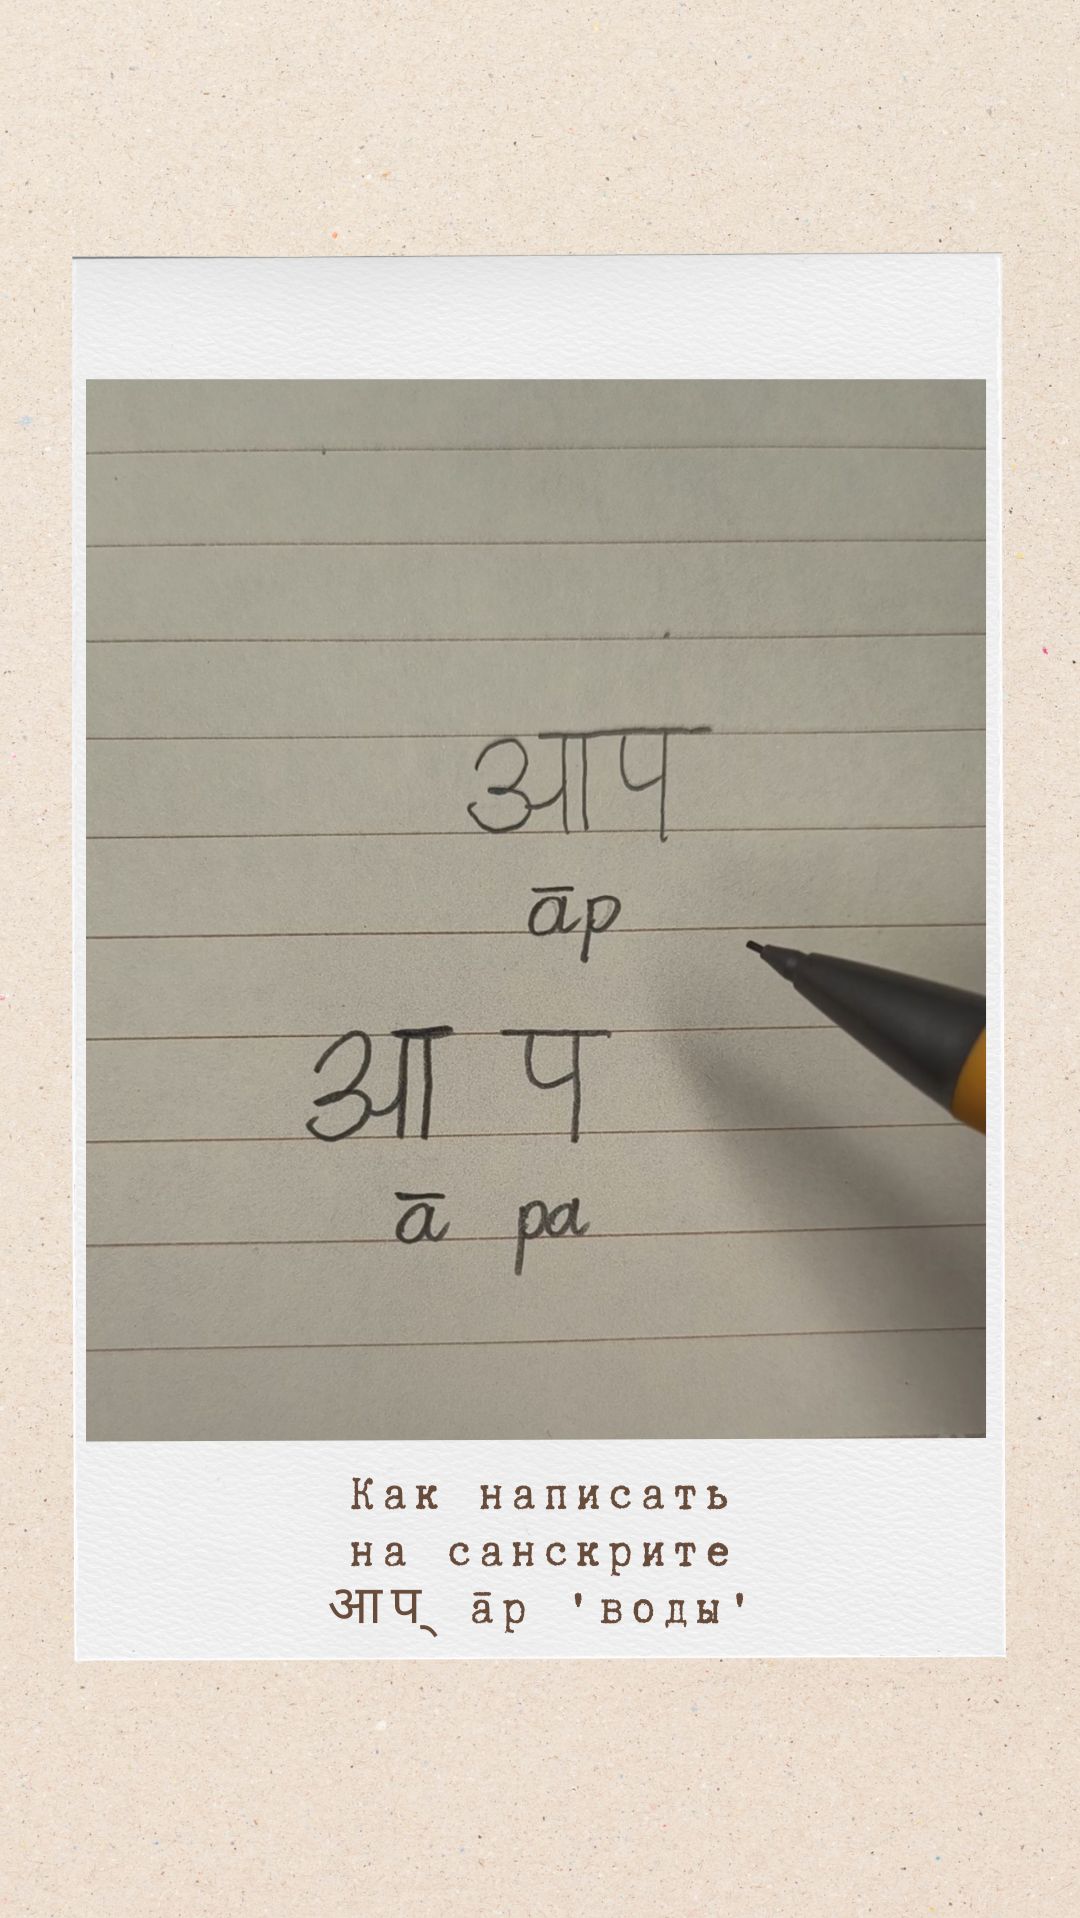 आप
āp
आ प
ā pa
Как написать
на санскрите
आप् āp 'воды'